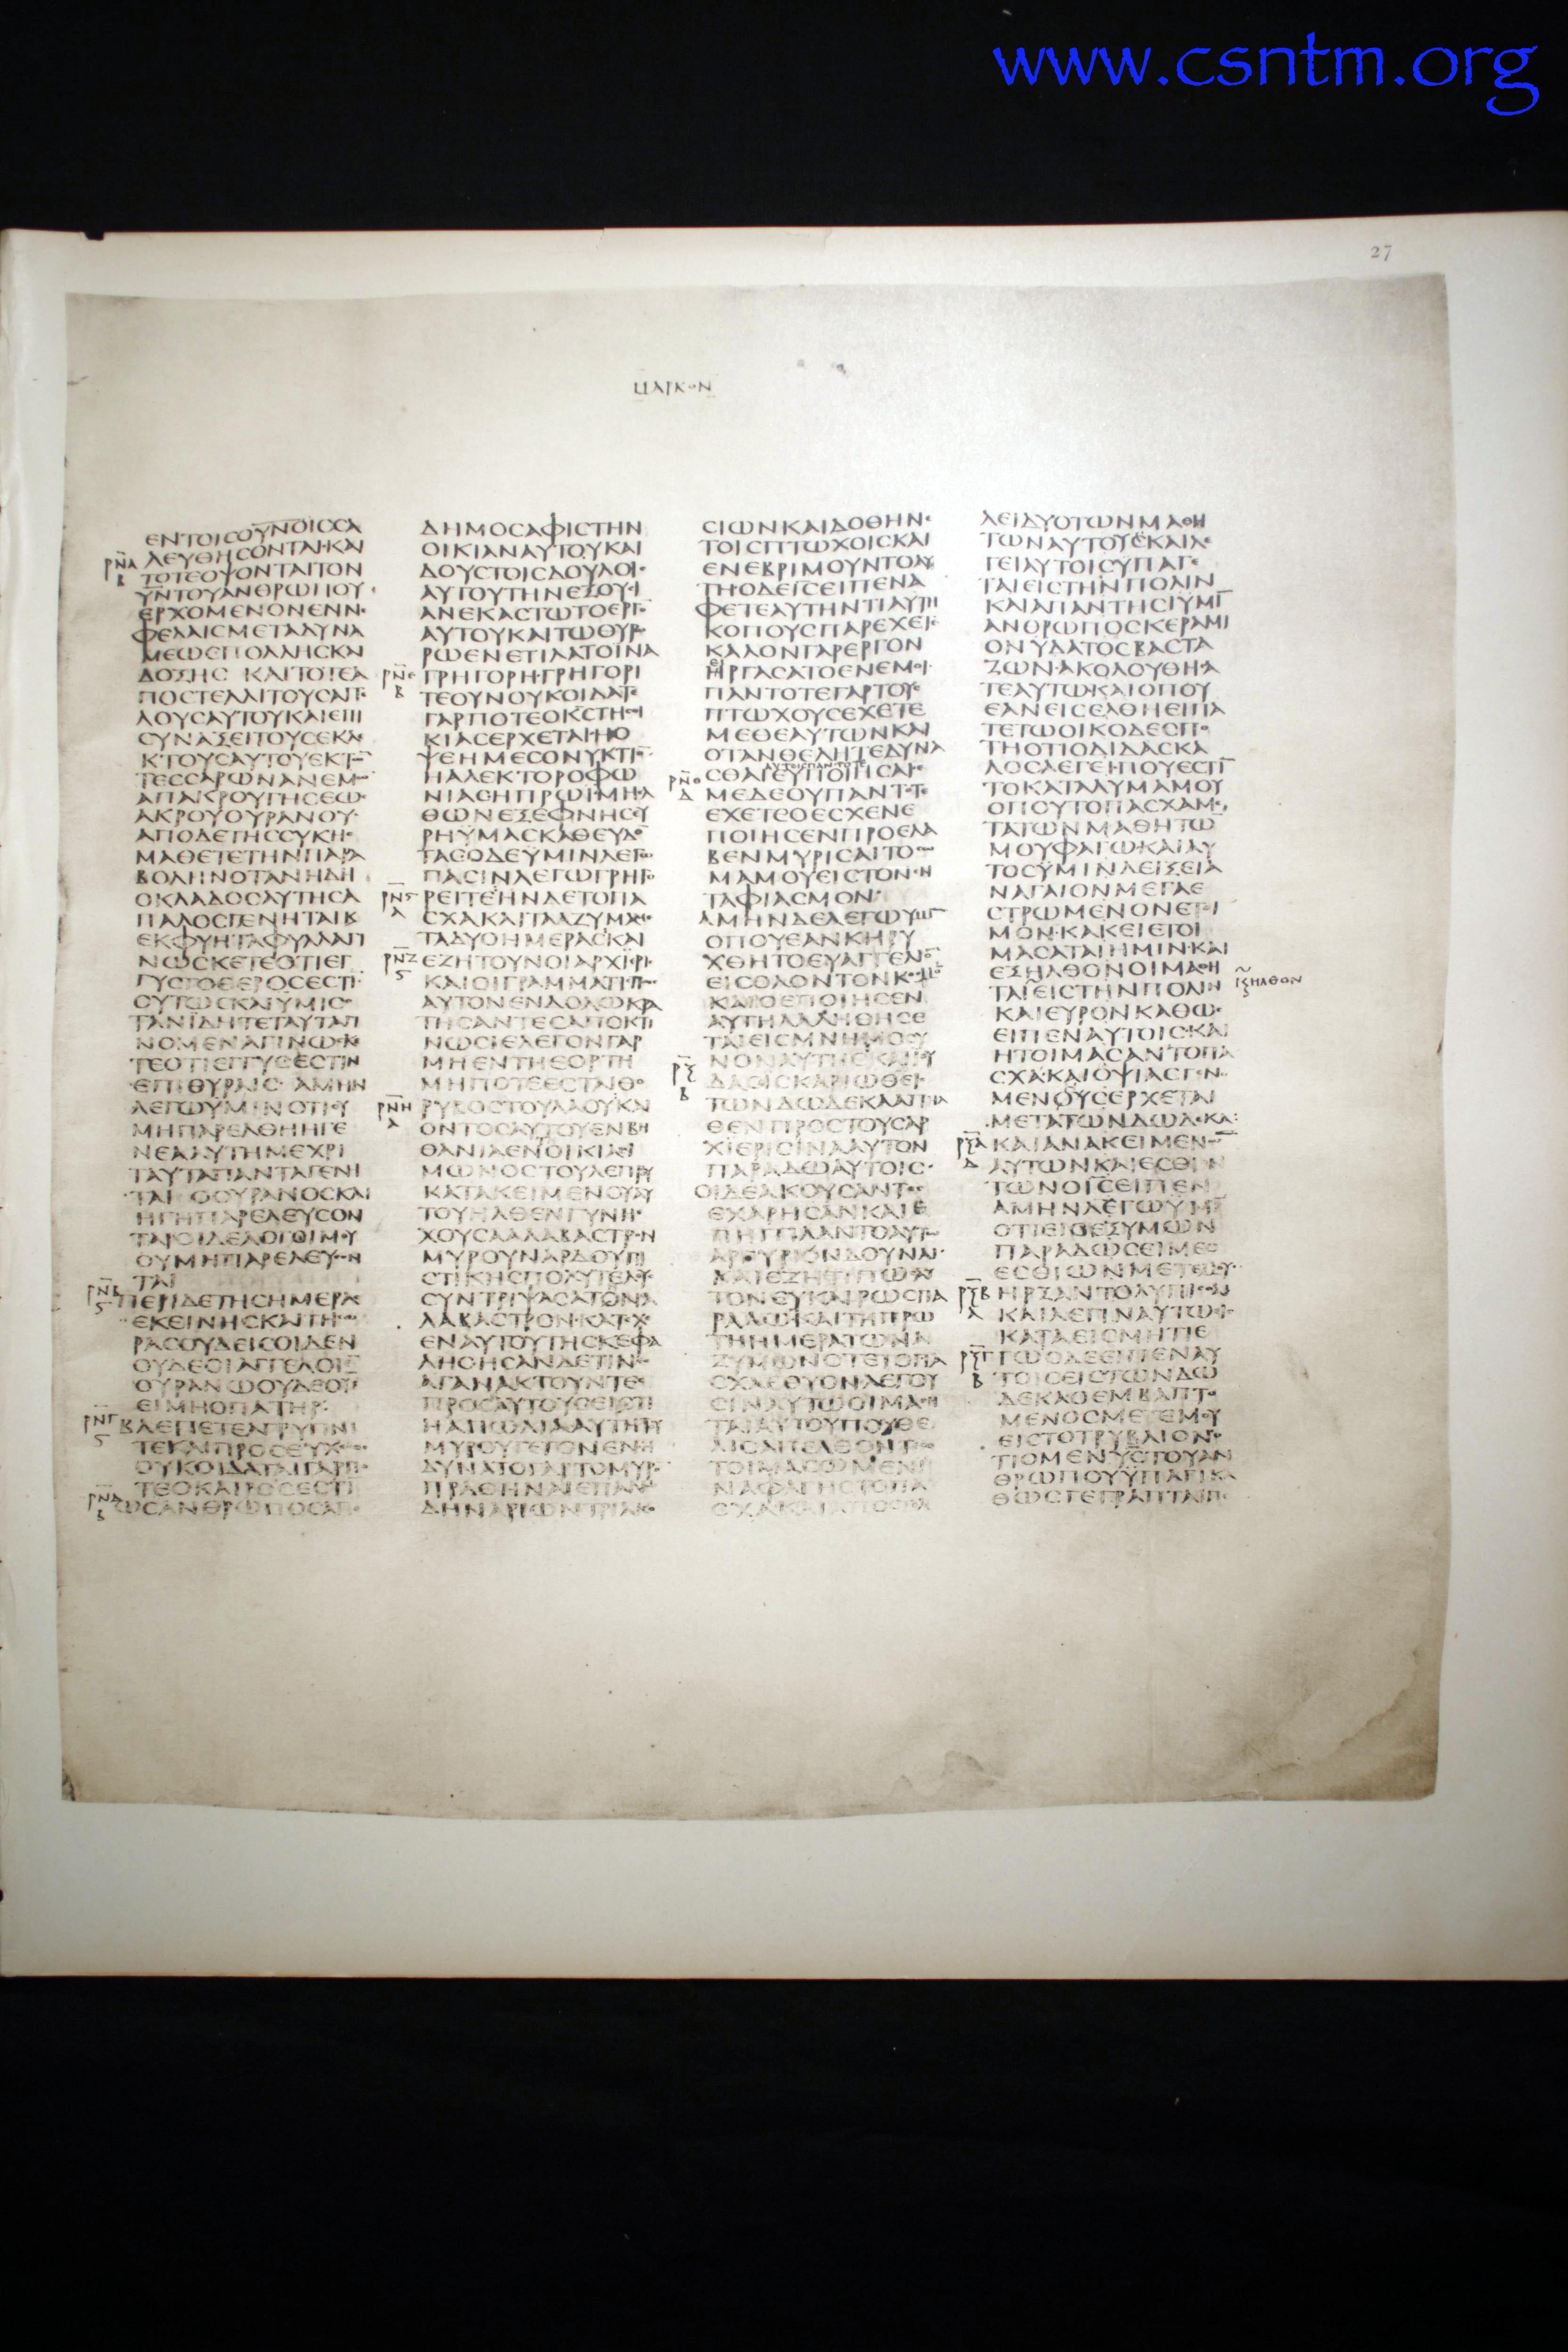 www.csntm.org
27
ΜΑΡΚΟΝ
ΕΝΤΟΙCΟΥΝΟΙCCΑ
ΛΕΥΘΗCΟΝΤΑΙ·ΚΑΙ
ΤΟΤΕΟΨΟΝΤΑΙΤΟΝ
ΥΝΤΟΥΑΝΘΡΩΠΟΥ
ΕΡΧΟΜΕΝΟΝΕΝΝΕ
ΦΕΛΑΙCΜΕΤΑΔΥΝΑ
ΜΕΩCΠΟΛΛΗCΚΑΙ
ΔΟΞΗC ΚΑΙΤΟΤΕΑ
ΠΟCΤΕΛΛΙΤΟΥCΑΓΓΕ
ΛΟΥCΑΥΤΟΥΚΑΙΕΠΙ
CΥΝΑΞΕΙΤΟΥCΕΚΛΕ
ΚΤΟΥCΑΥΤΟΥΕΚΤΩ̅
ΤΕCCΑΡΩΝΑΝΕΜΩ̅
ΑΠΑΚΡΟΥΓΗCΕΩC
ΑΚΡΟΥΟΥΡΑΝΟΥ·
ΑΠΟΔΕΤΗCCΥΚΗC
ΜΑΘΕΤΕΤΗΝΠΑΡΑ
ΒΟΛΗΝΟΤΑΝΗΔΗ
ΟΚΛΑΔΟCΑΥΤΗCΑ
ΠΑΛΟCΓΕΝΗΤΑΙΚ
ΕΚΦΥΗΤΑΦΥΛΛΑΓΙ
ΝΩCΚΕΤΕΟΤΙΕΓ
ΓΥCΤΟΘΕΡΟCΕCΤΙ
ΟΥΤΩCΚΑΙΥΜΙCΟ
ΤΑΝΪΔΗΤΕΤΑΥΤΑΓΙ
ΝΟΜΕΝΑΓΙΝΩCΚΕ
ΤΕΟΤΙΕΓΓΥCΕCΤΙΝ
ΕΠΙΘΥΡΑΙC· ΑΜΗΝ
ΛΕΓΩΥΜΙΝΟΤΙΟΥ
ΜΗΠΑΡΕΛΘΗΗΓΕ
ΝΕΑΑΥΤΗΜΕΧΡΙ
ΤΑΥΤΑΠΑΝΤΑΓΕΝΗ
ΤΑΙ ΟΟΥΡΑΝΟCΚΑΙ
ΗΓΗΠΑΡΕΛΕΥCΟΝ
ΤΑΙΟΙΔΕΛΟΓΟΙΜΟΥ
ΟΥΜΗΠΑΡΕΛΕΥCΟΝ
ΤΑΙ
ΠΕΡΙΔΕΤΗCΗΜΕΡΑC
ΕΚΕΙΝΗCΚΑΙΤΗCΩ
ΡΑCΟΥΔΕΙCΟΙΔΕΝ
ΟΥΔΕΟΙΑΓΓΕΛΟΙΕ̅
ΟΥΡΑΝΩΟΥΔΕΟΥΙ
ΕΙΜΗΟΠΑΤΗΡ·
ΒΛΕΠΕΤΕΑΓΡΥΠΝΙ
ΤΕΚΑΙΠΡΟCΕΥΧΕCΘΕ
ΟΥΚΟΙΔΑΤΑΙΓΑΡΠΟ
ΤΕΟΚΑΙΡΟCΕCΤΙ
ΩCΑΝΘΡΩΠΟCΑΠΟ
ΔΗΜΟCΑΦΙCΤΗΝ
ΟΙΚΙΑΝΑΥΤΟΥΚΑΙ
ΔΟΥCΤΟΙCΔΟΥΛΟΙC
ΑΥΤΟΥΤΗΝΕΞΟΥCΙ
ΑΝΕΚΑCΤΩΤΟΕΡΓΟ̅
ΑΥΤΟΥΚΑΙΤΩΘΥΡΩ
ΡΩΕΝΕΤΙΛΑΤΟΙΝΑ
ΓΡΗΓΟΡΗ·ΓΡΗΓΟΡΙ
ΤΕΟΥΝΟΥΚΟΙΔΑΤΕ
ΓΑΡΠΟΤΕΟΚCΤΗCΟΙ
ΚΙΑCΕΡΧΕΤΑΙ·ΗΟ
ΨΕΗΜΕCΟΝΥΚΤΙΟ̅
ΗΑΛΕΚΤΟΡΟΦΩ
ΝΙΑCΗΠΡΩΙ·ΜΗΕΛ
ΘΩΝΕΞΕΦΝΗCΕΥ
ΡΗΥΜΑCΚΑΘΕΥΔΟ̅
ΤΑCΟΔΕΥΜΙΝΛΕΓΩ
ΠΑCΙΝΛΕΓΩΓΡΗΓΟ
ΡΕΙΤΕΗΝΔΕΤΟΠΑ
CΧΑΚΑΙΤΑΑΖΥΜΑΜΕ
ΤΑΔΥΟΗΜΕΡΑCΚΑΙ
ΕΖΗΤΟΥΝΟΙΑΡΧΪΕΡΙC
ΚΑΙΟΙΓΡΑΜΜΑΤΙCΠΩC
ΑΥΤΟΝΕΝΔΟΛΩΚΡΑ
ΤΗCΑΝΤΕCΑΠΟΚΤΙ
ΝΩCΙΕΛΕΓΟΝΓΑΡ
ΜΗΕΝΤΗΕΟΡΤΗ
ΜΗΠΟΤΕΕCΤΑΙΘΟ
ΡΥΒΟCΤΟΥΛΑΟΥΚΑΙ
ΟΝΤΟCΑΥΤΟΥΕΝΒΗ
ΘΑΝΙΑΕΝΟΙΚΙΑCΙ
ΜΩΝΟCΤΟΥΛΕΠΡΟΥ
ΚΑΤΑΚΕΙΜΕΝΟΥΑΥ
ΤΟΥΗΛΘΕΝΓΥΝΗΕ
ΧΟΥCΑΑΛΑΒΑCΤΡΟΝ
ΜΥΡΟΥΝΑΡΔΟΥΠΙ
CΤΙΚΗCΠΟΛΥΤΕΛΟΥC
CΥΝΤΡΙΨΑCΑΤΟΝΑ
ΛΑΒΑCΤΡΟΝ·ΚΑΤΕΧΕ
ΕΝΑΥΤΟΥΤΗCΚΕΦΑ
ΛΗCΗCΑΝΔΕΤΙΝΕC
ΑΓΑΝΑΚΤΟΥΝΤΕC
ΠΡΟCΑΥΤΟΥCΕΙCΤΙ
ΗΑΠΩΛΙΑΑΥΤΗΤΟΥ
ΜΥΡΟΥΓΕΓΟΝΕΝΗ
ΔΥΝΑΤΟΓΑΡΤΟΜΥΡΟ̅
ΠΡΑΘΗΝΑΙΕΠΑΝΩ
ΔΗΝΑΡΙΩΝΤΡΙΑΚΟ
CΙΩΝΚΑΙΔΟΘΗΝΑΙ
ΤΟΙCΠΤΩΧΟΙCΚΑΙ
ΕΝΕΒΡΙΜΟΥΝΤΟΑΥ
ΤΗ·ΟΔΕΙCΕΙΠΕΝΑ
ΦΕΤΕΑΥΤΗΝΤΙΑΥΤΗ
ΚΟΠΟΥCΠΑΡΕΧΕΤΕ
ΚΑΛΟΝΓΑΡΕΡΓΟΝ
ΗΡΓΑCΑΤΟΕΝΕΜΟΙ·
ΠΑΝΤΟΤΕΓΑΡΤΟΥC
ΠΤΩΧΟΥCΕΧΕΤΕ
ΜΕΘΕΑΥΤΩΝΚΑΙ
ΟΤΑΝΘΕΛΗΤΕΔΥΝΑ
ΑΥΤΟΙCΠΑΝΤΟΤΕ
CΘΑΙΕΥΠΟΙΗCΑΙΕ
ΜΕΔΕΟΥΠΑΝΤΟΤΕ
ΕΧΕΤΕΟΕCΧΕΝΕ
ΠΟΙΗCΕΝΠΡΟΕΛΑ
ΒΕΝΜΥΡΙCΑΙΤΟCΩ
ΜΑΜΟΥΕΙCΤΟΝΕΝ
ΤΑΦΙΑCΜΟΝ·
ΑΜΗΝΔΕΛΕΓΩΥΜΙ̅
ΟΠΟΥΕΑΝΚΗΡΥ
ΧΘΗΤΟΕΥΑΓΓΕΛΙΟ̅
ΕΙCΟΛΟΝΤΟΝΚΟCΜΟ̅
ΚΑΙΟΕΠΟΙΗCΕΝ
ΑΥΤΗΛΑΛΗΘΗCΕ
ΤΑΙΕΙCΜΝΗΜΟCΥ
ΝΟΝΑΥΤΗC·ΚΑΙΪΟΥ
ΔΑCΙCΚΑΡΙΩΘΕΙC
ΤΩΝΔΩΔΕΚΑΑΠΗΛ
ΘΕΝΠΡΟCΤΟΥCΑΡ
ΧΙΕΡΙCΙΝΑΑΥΤΟΝ
ΠΑΡΑΔΩΑΥΤΟΙC·
ΟΙΔΕΑΚΟΥCΑΝΤΕC
ΕΧΑΡΗCΑΝΚΑΙΕ
ΠΗΓΓΙΛΑΝΤΟΑΥΤΩ
ΑΡΓΥΡΙΟΝΔΟΥΝΑΙ·
ΚΑΙΕΖΗΤΙΠΩCΑΥ
ΤΟΝΕΥΚΑΙΡΩCΠΑ
ΡΑΔΩ·ΚΑΙΤΗΠΡΩ
ΤΗΗΜΕΡΑΤΩΝΑ
ΖΥΜΩΝΟΤΕΤΟΠΑ
CΧΑΕΘΥΟΝΛΕΓΟΥ
CΙΝΑΥΤΩΟΙΜΑΘΗ
ΤΑΙΑΥΤΟΥΠΟΥΘΕ
ΛΙCΑΠΕΛΘΟΝΤΕC
ΤΟΙΜΑCΩΜΕΝΙ
ΝΑΦΑΓΗCΤΟΠΑ
CΧΑΚΑΙΑΠΟCΤΕΛ
ΛΕΙΔΥΟΤΩΝΜΑΘΗ
ΤΩΝΑΥΤΟΥΚΑΙΛΕ
ΓΕΙΑΥΤΟΙCΥΠΑΓΕ
ΤΑΙΕΙCΤΗΝΠΟΛΙΝ
ΚΑΙΑΠΑΝΤΗCΙΥΜΙ̅
ΑΝΘΡΩΠΟCΚΕΡΑΜΙ
ΟΝΥΔΑΤΟCΒΑCΤΑ
ΖΩΝ·ΑΚΟΛΟΥΘΗCΑ
ΤΕΑΥΤΩ·ΚΑΙΟΠΟΥ
ΕΑΝΕΙCΕΛΘΗΕΙΠΑ
ΤΕΤΩΟΙΚΟΔΕCΠΟ
ΤΗΟΤΙΟΔΙΔΑCΚΑ
ΛΟCΛΕΓΕΙ·ΠΟΥΕCΤΙ̅
ΤΟΚΑΤΑΛΥΜΑΜΟΥ
ΟΠΟΥΤΟΠΑCΧΑΜΕ
ΤΑΤΩΝΜΑΘΗΤΩ̅
ΜΟΥΦΑΓΩ·ΚΑΙΑΥ
ΤΟCΥΜΙΝΔΕΙΞΕΙΑ
ΝΑΓΑΙΟΝΜΕΓΑΕ
CΤΡΩΜΕΝΟΝΕΤΟΙ
ΜΟΝ·ΚΑΚΕΙΕΤΟΙ
ΜΑCΑΤΑΙΗΜΙΝ·ΚΑΙ
ΕΞΗΛΘΟΝΟΙΜΑΘΗ
ΤΑΙΕΙCΤΗΝΠΟΛΙΝ
ΚΑΙΕΥΡΟΝΚΑΘΩC
ΕΙΠΕΝΑΥΤΟΙCΚΑΙ
ΗΤΟΙΜΑCΑΝΤΟΠΑ
CΧΑΚΑΙΟΨΙΑCΓΕΝΟ
ΜΕΝΟΥCΕΡΧΕΤΑΙ
ΜΕΤΑΤΩΝΔΩΔΕΚΑ·
ΚΑΙΑΝΑΚΕΙΜΕΝΩ̅
ΑΥΤΩΝΚΑΙΕCΘΙΟ̅
ΤΩΝΟΙCΕΙΠΕΝ
ΑΜΗΝΛΕΓΩΥΜΙ̅
ΟΤΙΕΙCΕΞΥΜΩΝ
ΠΑΡΑΔΩCΕΙΜΕΟ
ΕCΘΙΩΝΜΕΤΕΜΟΥ
ΗΡΞΑΝΤΟΛΥΠΙCΘΑΙ
ΚΑΙΛΕΓΙΝΑΥΤΩΕΙC
ΚΑΤΑΕΙCΜΗΤΙΕ
ΓΩΟΔΕΕΙΠΕΝΑΥ
ΤΟΙCΕΙCΤΩΝΔΩ
ΔΕΚΑΟΕΜΒΑΠΤΟ
ΜΕΝΟCΜΕΤΕΜΟΥ
ΕΙCΤΟΤΡΥΒΛΙΟΝΟ
ΤΙΟΜΕΝΥCΤΟΥΑΝ
ΘΡΩΠΟΥΫΠΑΓΙΚΑ
ΘΩCΓΕΓΡΑΠΤΑΙΠΕ
ΕΙCΗΛΘΟΝ